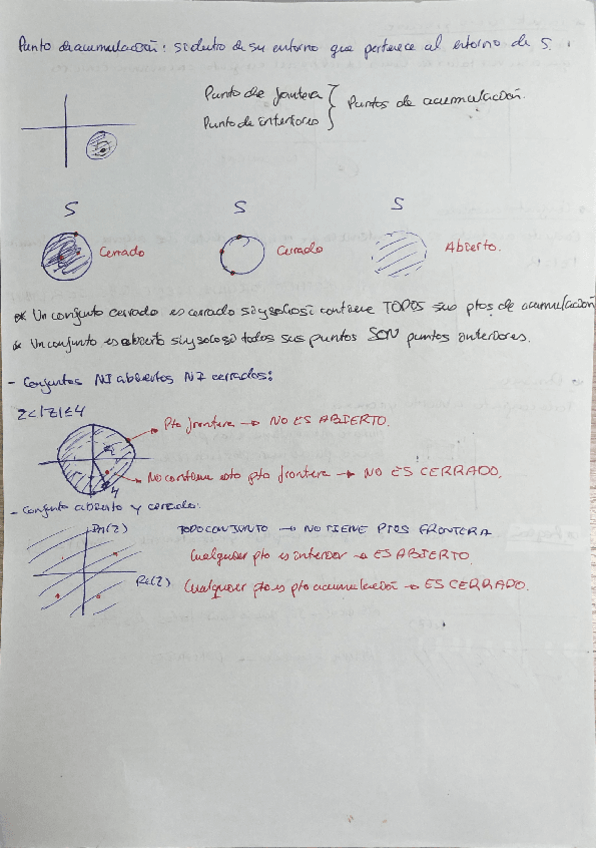 Punto de acumulación: si dentro de su entorno que pertenece al entorno de S.
Punto de frontera
Punto de interiores
Puntos de acumulación.
S
S
S
Cerrado
Cerrado
Abierto.
* Un conjunto cerrado es cerrado si y solo si contiene TODOS sus ptos de acumulación
* Un conjunto es abierto si y solo si todos sus puntos SON puntos interiores.
- Conjuntos NI abiertos NI cerrados:
2<|z|≤4
Pto frontera → NO ES ABIERTO.
2
No contiene esto pto frontera → NO ES CERRADO.
4
- Conjunto abierto y cerrado:
Im(z)
TODO CONJUNTO → NO TIENE PTOS FRONTERA
Cualquier pto es interior → ES ABIERTO.
Re(z)
Cualquier pto es pto acumulación → ES CERRADO.